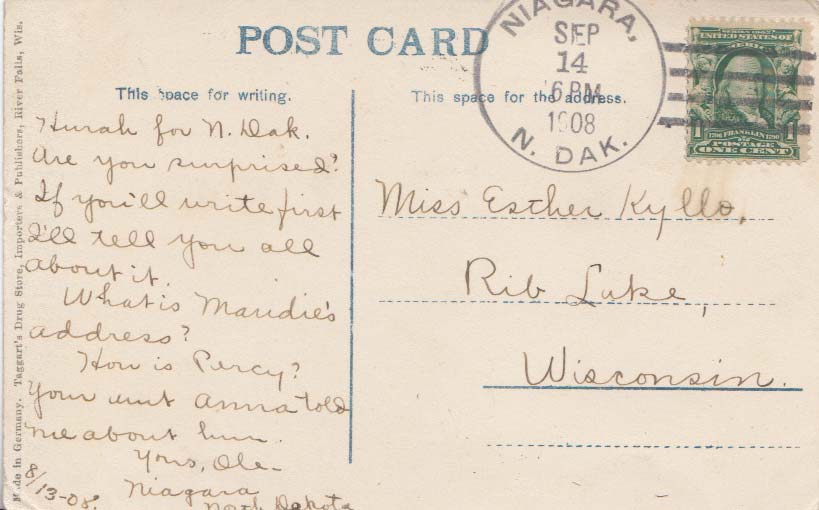 POST CARD
This space for writing.
This space for the address.
NIAGARA,
SEP
14
6 PM
1908
N. DAK.
SERIES 1902
UNITED STATES OF
AMERICA
1 1706 FRANKLIN 1790 1
POSTAGE
ONE CENT
Made in Germany. Taggart's Drug Store, Importers & Publishers, River Falls, Wis.
Hurah for N. Dak.
Are you surprised?
If you'll write first
I'll tell you all
about it.
What is Maudie's
address?
How is Percy?
Your aunt Anna told
me about him.
Yours, Ole-
Niagara
North Dakota
8/13-08.
Miss Esther Kyllo,
Rib Lake,
Wisconsin.